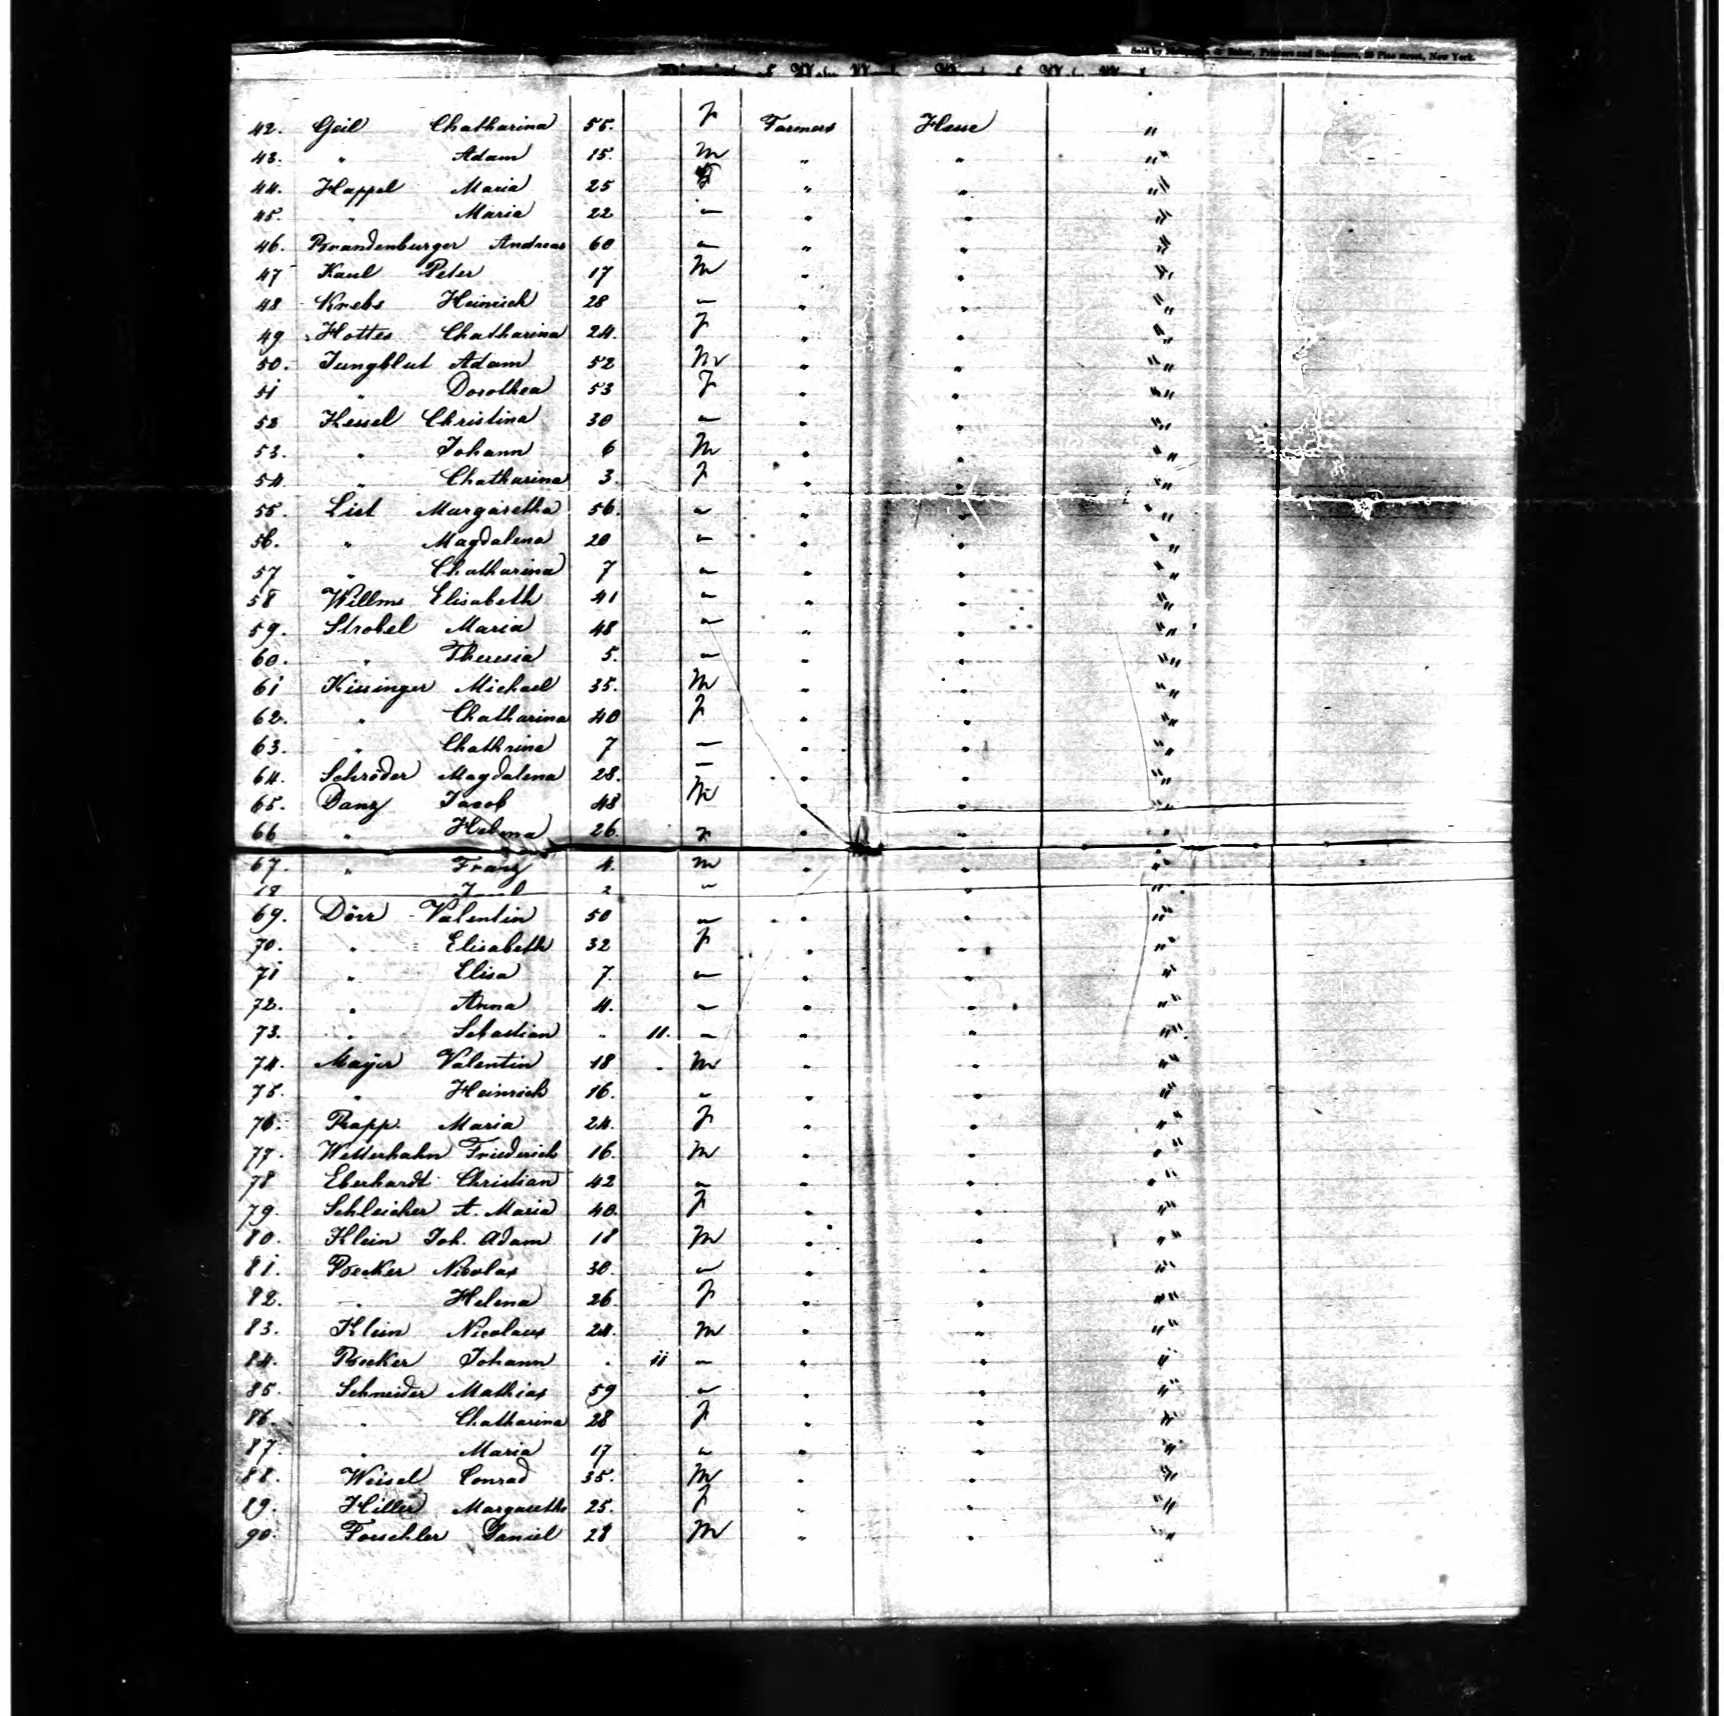 Sold by & Baker, Printers and Stationers, Pine street, New York.
42. Geil Chatharina 55. F Farmers Hesse "
43. " Adam 15. M " " "
44. Happel Maria 25 F " " "
45. " Maria 22 " " " "
46. Brandenburger Andreas 60 " " " "
47 Kaul Peter 17 M " " "
48 Krebs Heinrich 28 " " " "
49 Hottes Chatharina 24. F " " "
50. Jungblut Adam 52 M " " "
51 " Dorothea 53 F " " "
52 Hessel Christina 30 " " " "
53. " Johann 6 M " " "
54. " Chatharina 3. F " " "
55. List Margaretha 56. " " " "
56. " Magdalena 20 " " " "
57 " Chatharina 7 " " " "
58 Willms Elisabeth 41 " " " "
59. Strobel Maria 48 " " " "
60. " Theresia 5. " " " "
61 Kissinger Michael 35. M " " "
62. " Chatharina 40 F " " "
63. " Chathrina 7 " " " "
64. Schröder Magdalena 28. " " " "
65. Danz Jacob 48 M " " "
66 " Helena 26. F " " "
67. " Franz 4. M " " "
2 " " " "
69. Dörr Valentin 50 " " " "
70. " Elisabeth 32 F " " "
71 " Elisa 7. " " " "
72. " Anna 4. " " " "
73. " Sebastian " 11. " " " "
74. Mayer Valentin 18 M " " "
75. " Heinrich 16. " " " "
76. Rapp. Maria 24. F " " "
77. Wetterhahn Friederich 16. M " " "
78 Eberhardt Christian 42 " " " "
79. Schleicher A. Maria 40. F " " "
80. Klein Joh. Adam 18 M " " "
81. Becker Nicolas 30. " " " "
82. " Helena 26. F " " "
83. Klein Nicolaus 24. M " " "
84. Becker Johann " 11 " " " "
85. Schneider Mathias 59 " " " "
86. " Chatharina 28 F " " "
87. " Maria 17 " " " "
88. Weisel Conrad 35. M " " "
89. Hiller Margaretha 25. F " " "
90. Foeschler Daniel 28 M " " "